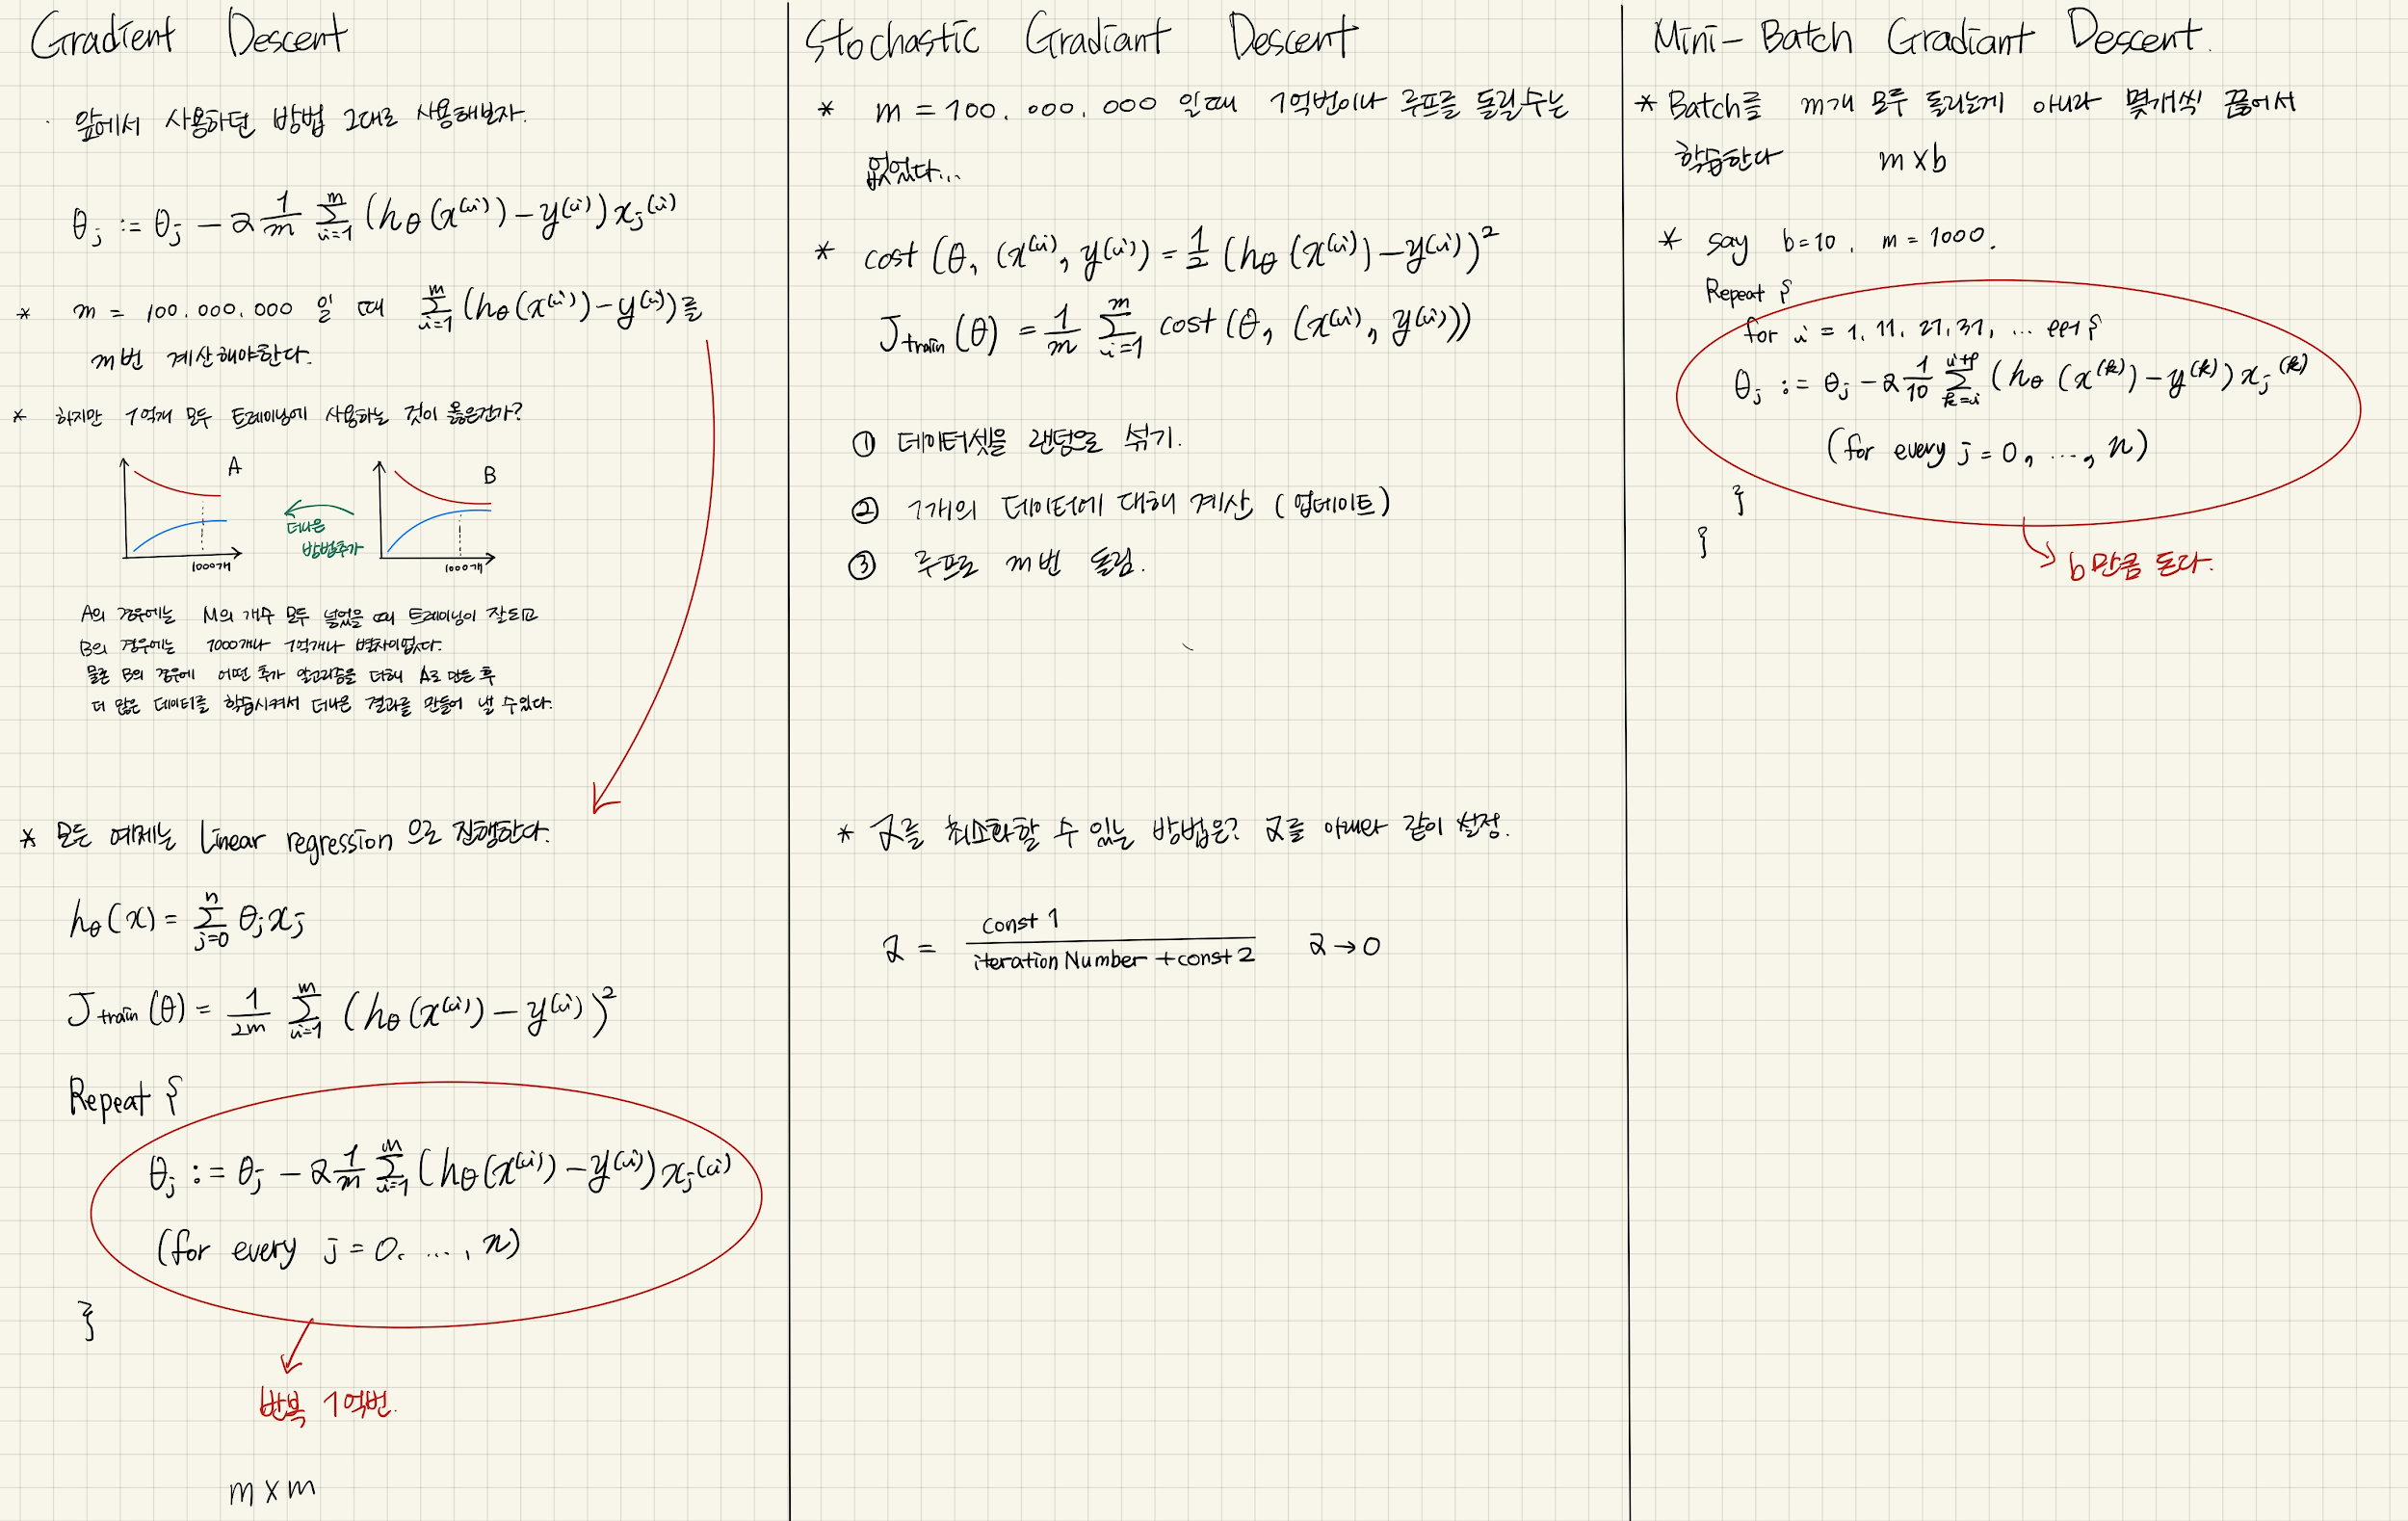 Gradient Descent
· 앞에서 사용하던 방법 그대로 사용해보자.
θj := θj − α 1/m Σ_{i=1}^{m} (hθ(x^(i)) − y^(i)) xj^(i)
* m = 100.000.000 일 때 Σ_{i=1}^{m} (hθ(x^(i)) − y^(i))를
m번 계산해야한다.
* 하지만 1억개 모두 트레이닝에 사용하는 것이 옳은건가?
A
1000개
더나은
방법추가
B
1000개
A의 경우에는 M의 개수 모두 넣었을 때 트레이닝이 잘되고
B의 경우에는 1000개나 1억개나 별차이없다.
물론 B의 경우에 어떤 추가 알고리즘을 더해 A로 만든 후
더 많은 데이터를 학습시켜서 더나은 결과를 만들어 낼 수있다.
* 모든 예제는 Linear regression 으로 진행한다.
hθ(x) = Σ_{j=0}^{n} θj xj
J train (θ) = 1/2m Σ_{i=1}^{m} (hθ(x^(i)) − y^(i))^2
Repeat {
θj := θj − α 1/m Σ_{i=1}^{m} (hθ(x^(i)) − y^(i)) xj^(i)
(for every j = 0. ..., n)
}
반복 1억번.
m x m
Stochastic Gradiant Descent
* m = 100. 000. 000 일때 1억번이나 루프를 돌릴수는
없었다...
* cost (θ, (x^(i), y^(i)) = 1/2 (hθ (x^(i)) − y^(i))^2
J train (θ) = 1/m Σ_{i=1}^{m} cost (θ, (x^(i), y^(i)))
① 데이터셋을 랜덤으로 섞기.
② 1개의 데이터에 대해 계산 (업데이트)
③ 루프로 m번 돌림.
* α를 최소화할 수 있는 방법은? α를 아래와 같이 설정.
α = const 1 / iteration Number + const 2 α → 0
Mini-Batch Gradiant Descent.
* Batch를 m개 모두 돌리는게 아니라 몇개씩 끊어서
학습한다 m x b
* say b=10. m = 1000.
Repeat {
for i = 1. 11. 21. 31, ... 991 {
θj := θj − α 1/10 Σ_{k=i}^{i+9} (hθ (x^(k)) − y^(k)) xj^(k)
(for every j = 0, ..., n)
}
}
b만큼 돈다.